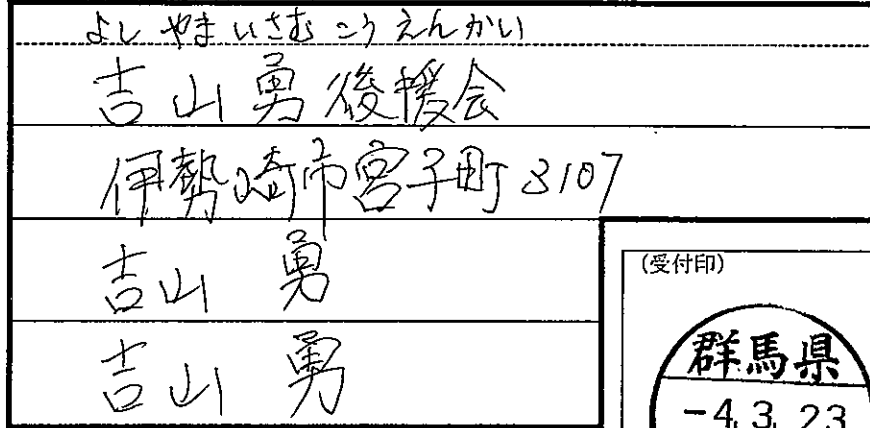 よしやまいさむこうえんかい
吉山勇後援会
伊勢崎市宮子町3107
吉山 勇
(受付印)
吉山 勇
群馬県
-4.3.23